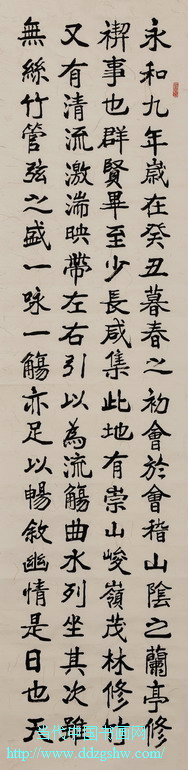 永和九年歲在癸丑暮春之初會於會稽山陰之蘭亭修
禊事也群賢畢至少長咸集此地有崇山峻嶺茂林修竹
又有清流激湍映帶左右引以為流觴曲水列坐其次雖
無絲竹管弦之盛一詠一觴亦足以暢敘幽情是日也天
当代中国书画网
www.ddzgshw.com